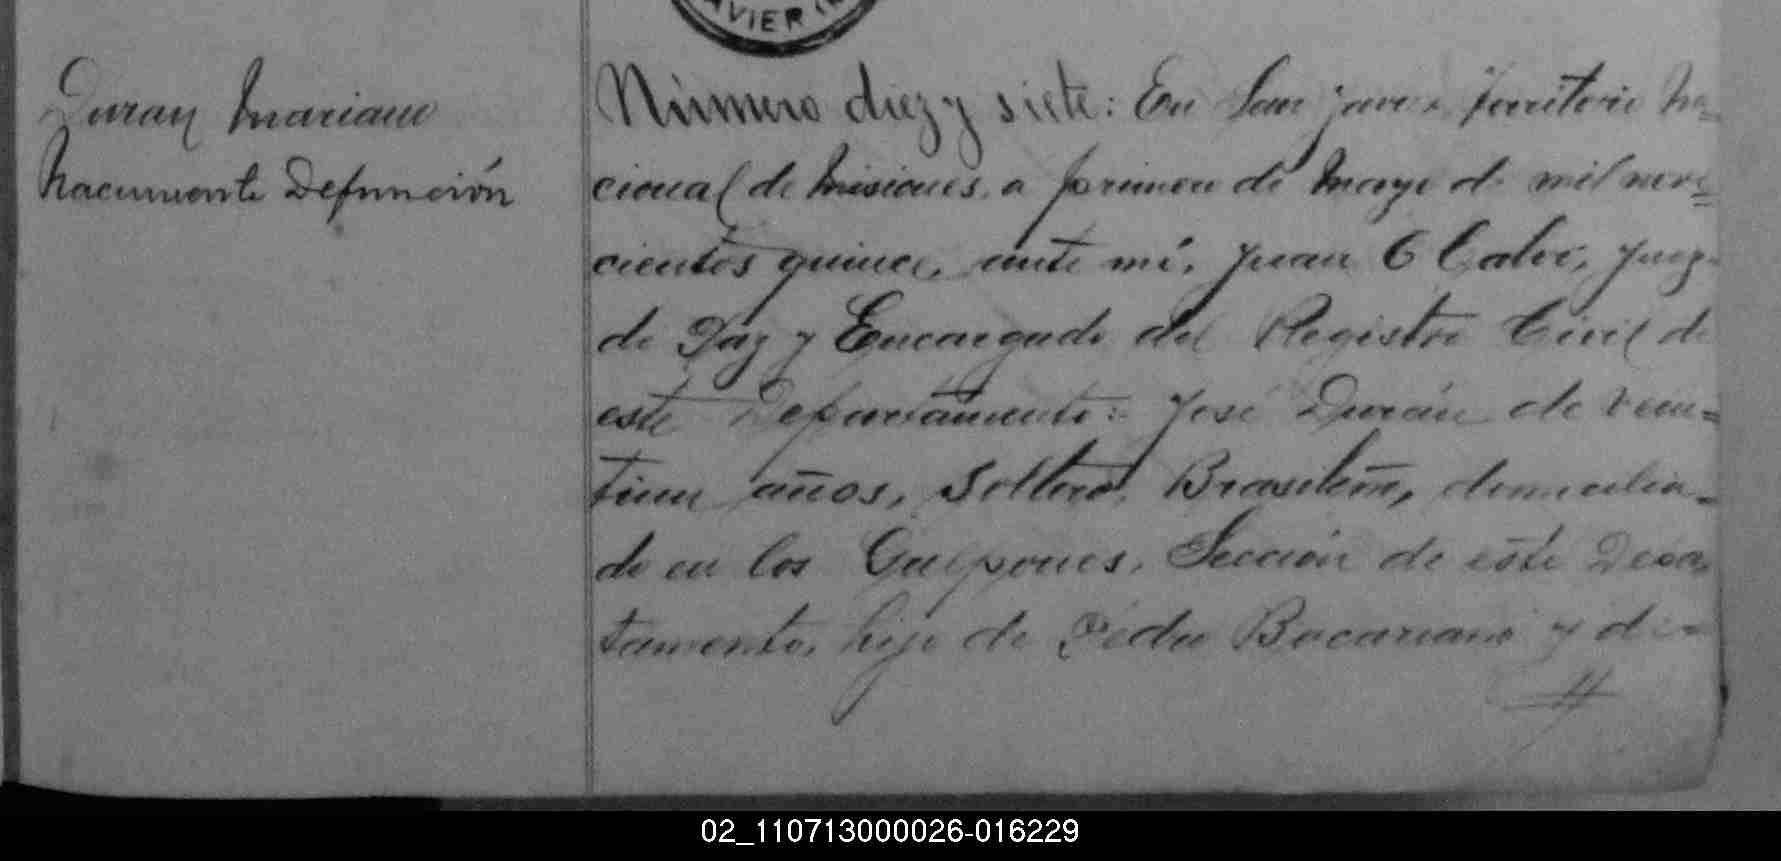 AVIER (M
Duran Mariano
Nacimiento Defunción
Número diez y siete: En San Javier Territorio Na=
cional de Misiones, a primero de Mayo de mil nove=
cientos quince, ante mí, Juan C Calvo, Juez
de Paz y Encargado del Registro Civil de
este Departamento: José Durán de vein=
tiun años, Soltero, Brasileño, domicilia=
do en los Galpones, Sección de este Depar
tamento, hijo de Pedro Bacariano y de
02_110713000026-016229